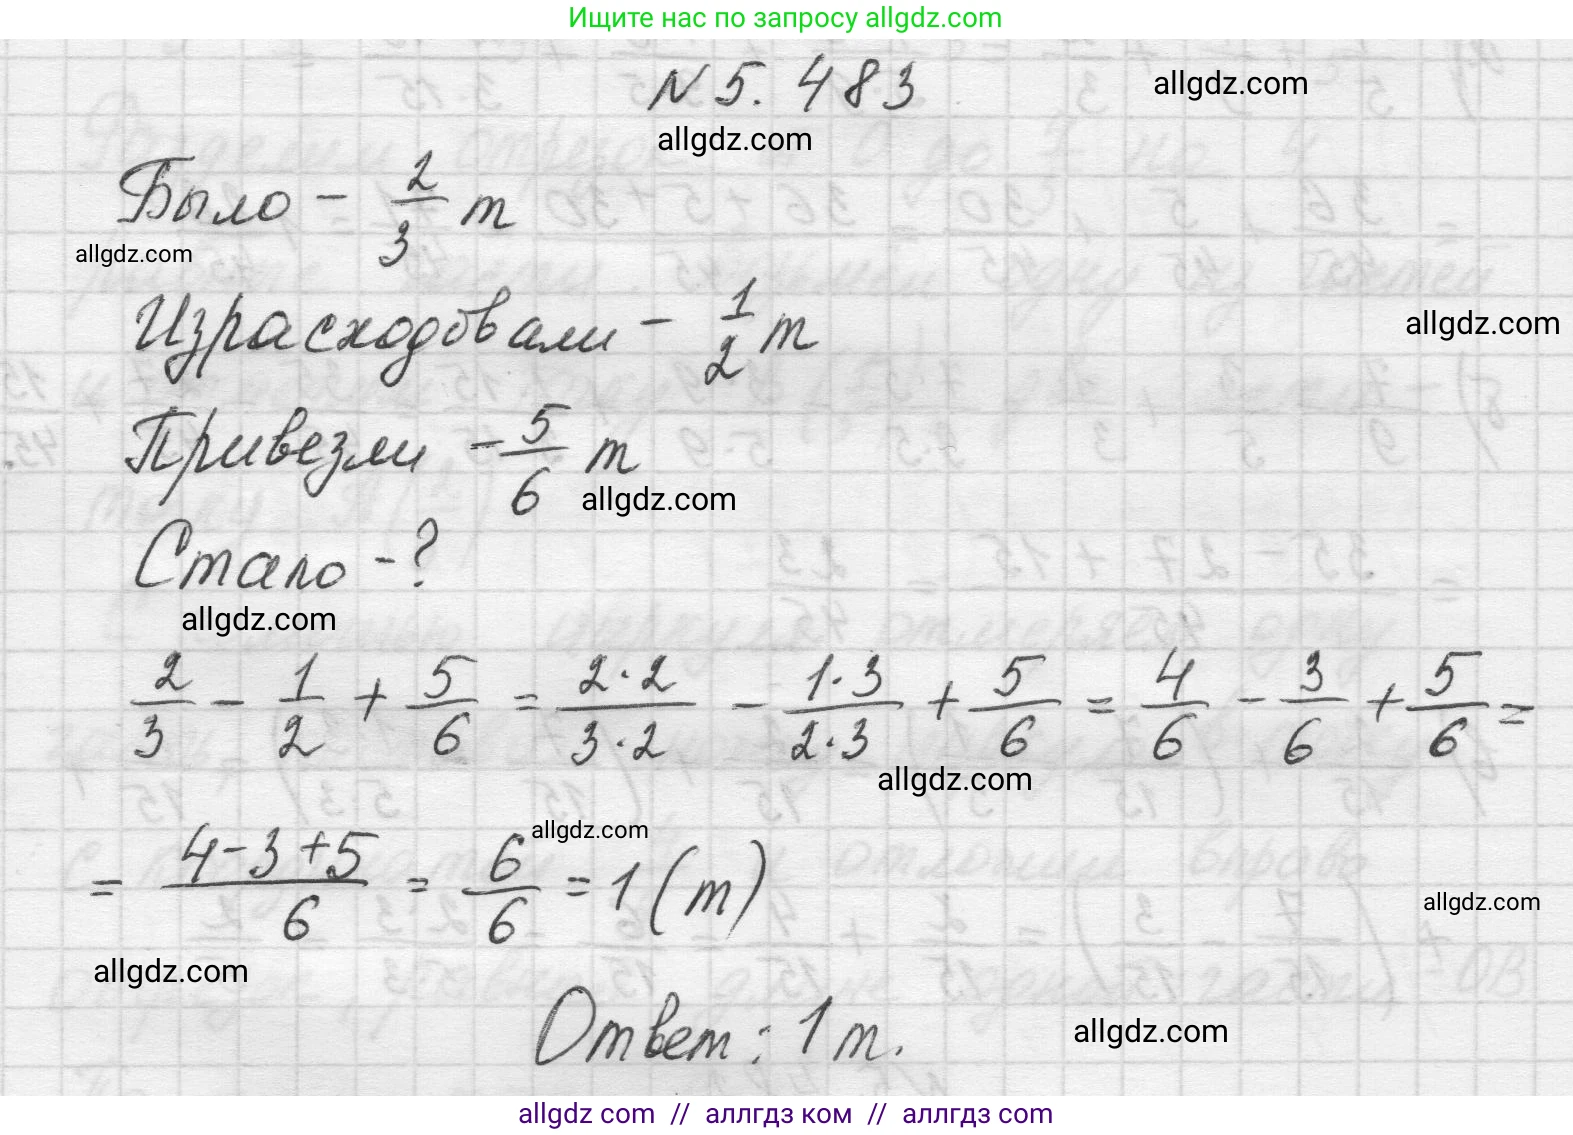 Ищите нас по запросу allgdz.com
№ 5.483
allgdz.com
allgdz.com
Было - 2/3 т
allgdz.com
Израсходовали - 1/2 т
allgdz.com
Привезли - 5/6 т
allgdz.com
Стало - ?
allgdz.com
2/3 - 1/2 + 5/6 = 2·2/3·2 - 1·3/2·3 + 5/6 = 4/6 - 3/6 + 5/6 =
allgdz.com
allgdz.com
= 4-3+5/6 = 6/6 = 1 (т)
allgdz.com
allgdz.com
Ответ: 1 т.
allgdz.com
allgdz com // аллгдз ком // аллгдз com